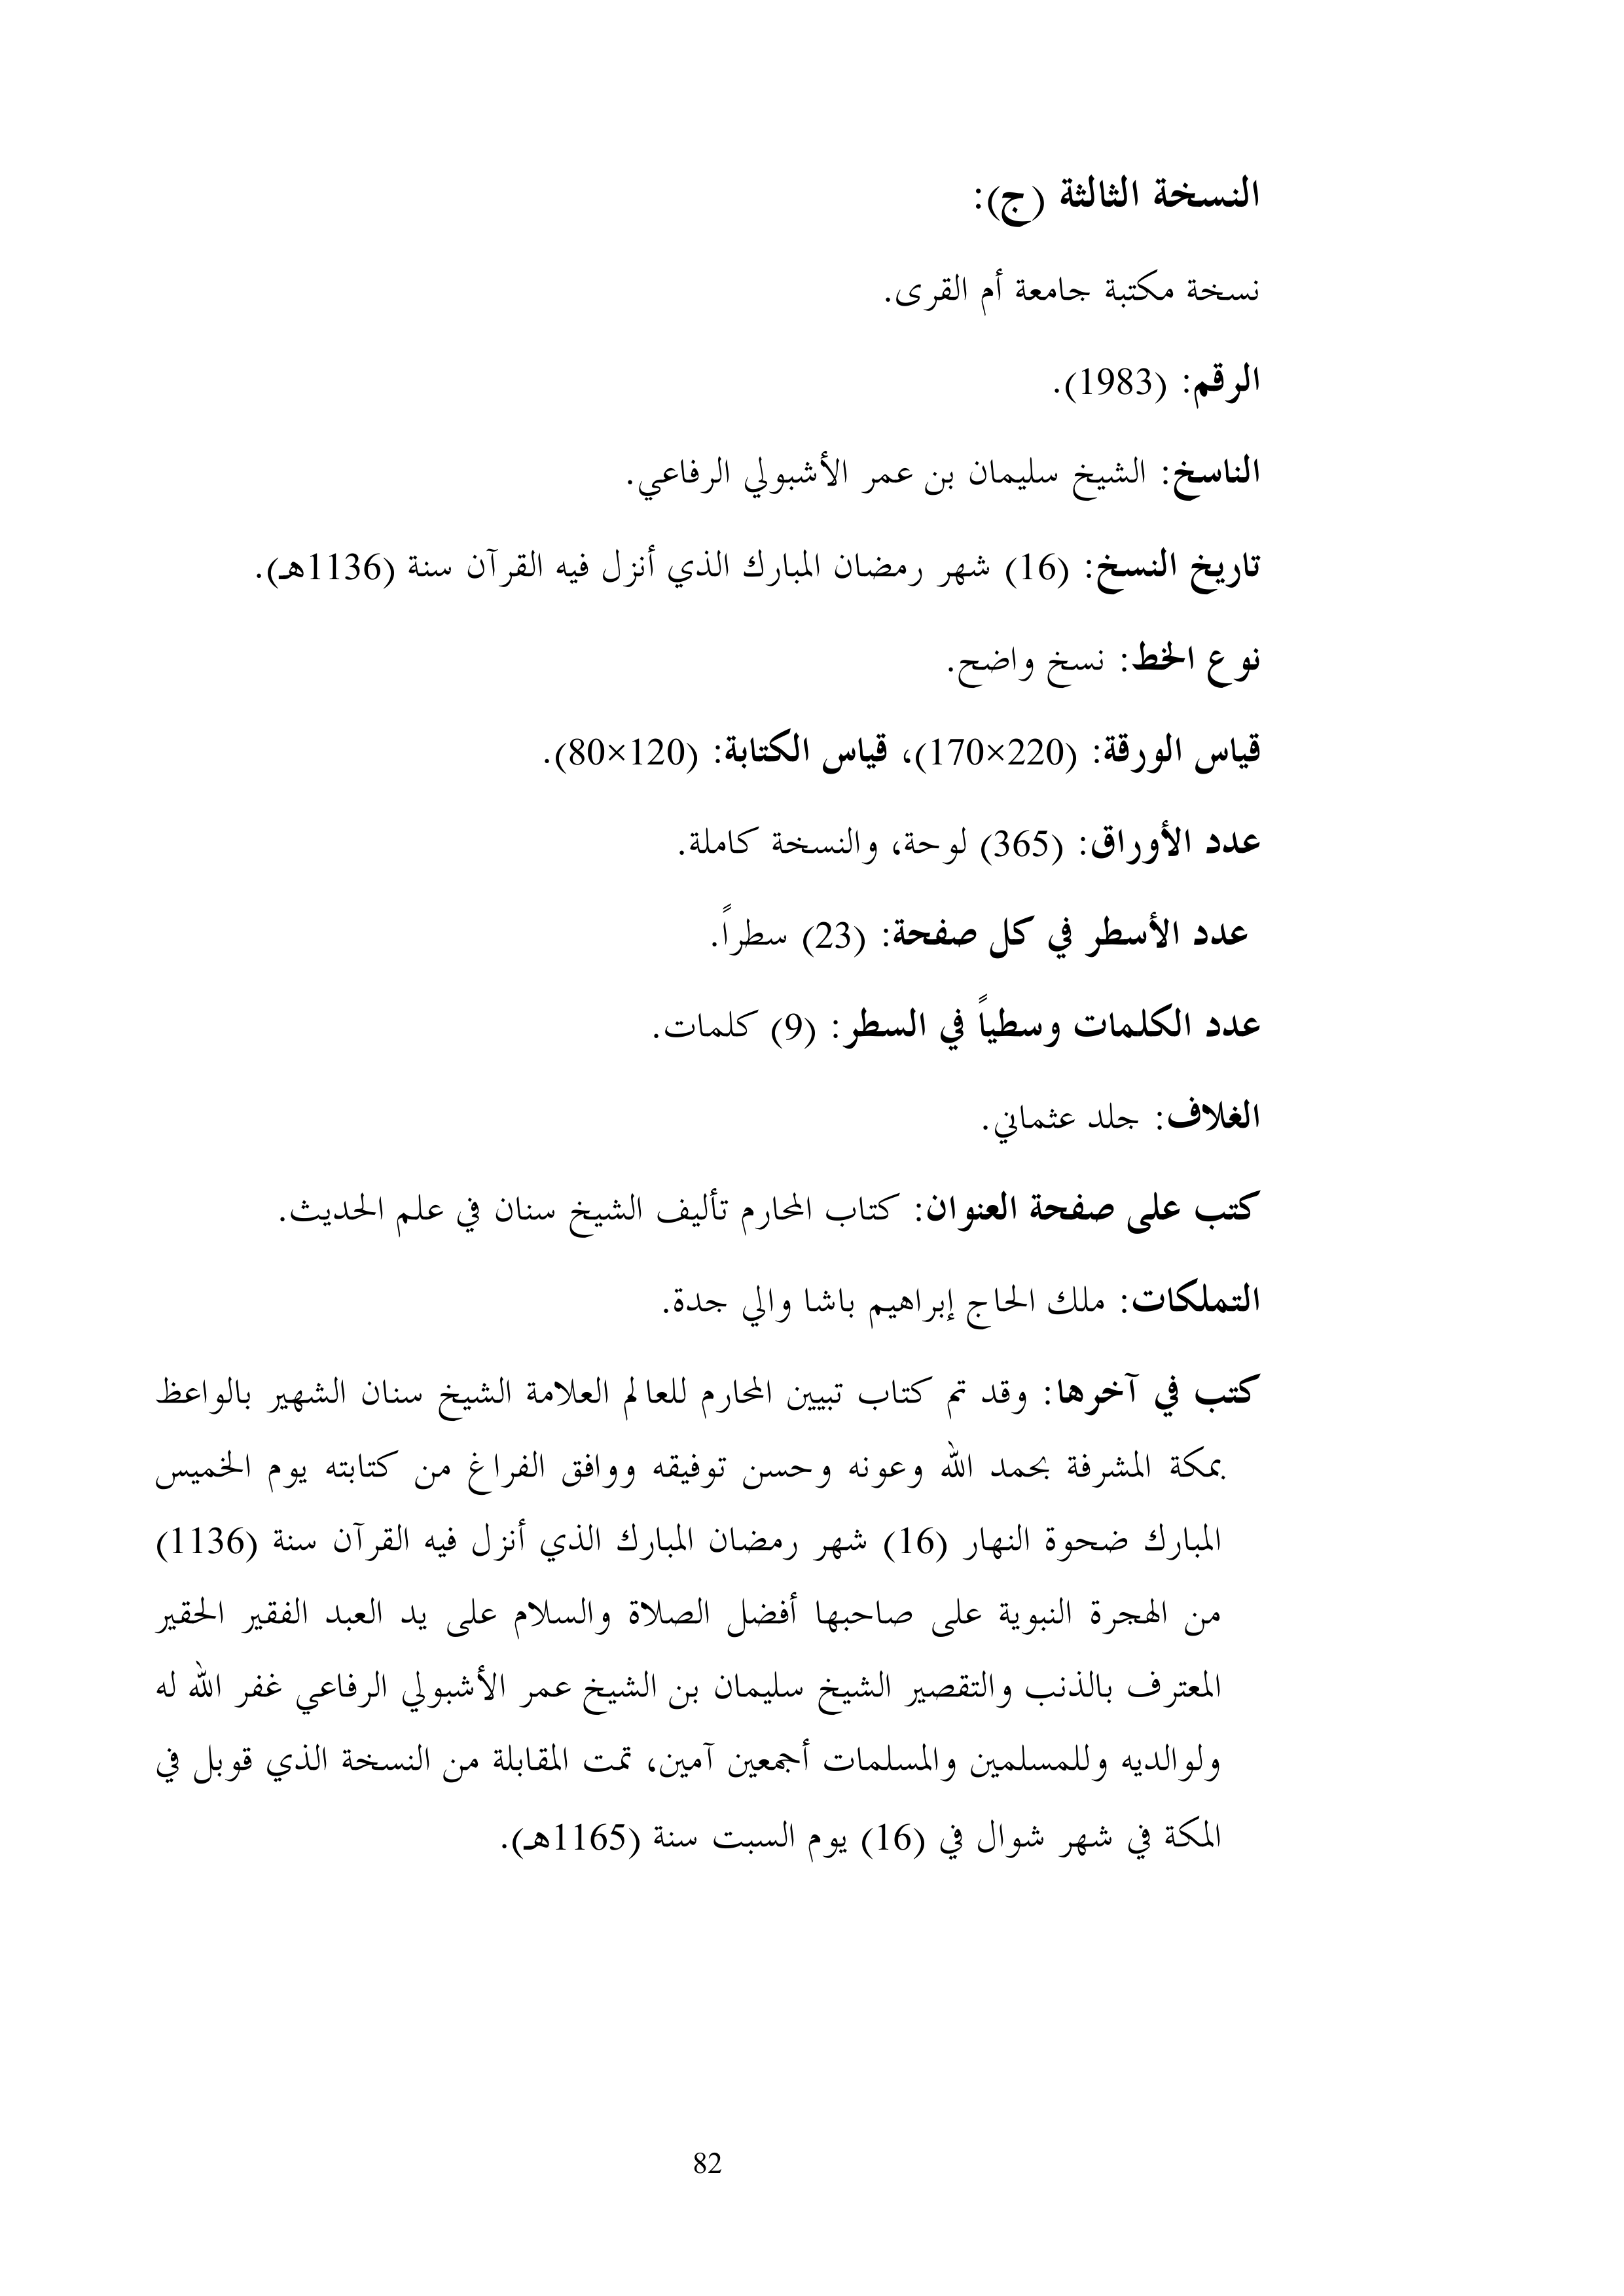 النسخة الثالثة (ج):
نسخة مكتبة جامعة أم القرى.
الرقم: (1983).
الناسخ: الشيخ سليمان بن عمر الأشبولي الرفاعي.
تاريخ النسخ: (16) شهر رمضان المبارك الذي أنزل فيه القرآن سنة (1136هـ).
نوع الخط: نسخ واضح.
قياس الورقة: (220×170)، قياس الكتابة: (120×80).
عدد الأوراق: (365) لوحة، والنسخة كاملة.
عدد الأسطر في كل صفحة: (23) سطراً.
عدد الكلمات وسطياً في السطر: (9) كلمات.
الغلاف: جلد عثماني.
كتب على صفحة العنوان: كتاب المحارم تأليف الشيخ سنان في علم الحديث.
التملكات: ملك الحاج إبراهيم باشا والي جدة.
كتب في آخرها: وقد تم كتاب تبيين المحارم للعالم العلامة الشيخ سنان الشهير بالواعظ
بمكة المشرفة بحمد الله وعونه وحسن توفيقه ووافق الفراغ من كتابته يوم الخميس
المبارك ضحوة النهار (16) شهر رمضان المبارك الذي أنزل فيه القرآن سنة (1136)
من الهجرة النبوية على صاحبها أفضل الصلاة والسلام على يد العبد الفقير الحقير
المعترف بالذنب والتقصير الشيخ سليمان بن الشيخ عمر الأشبولي الرفاعي غفر الله له
ولوالديه وللمسلمين والمسلمات أجمعين آمين، تمت المقابلة من النسخة الذي قوبل في
المكة في شهر شوال في (16) يوم السبت سنة (1165هـ).
82